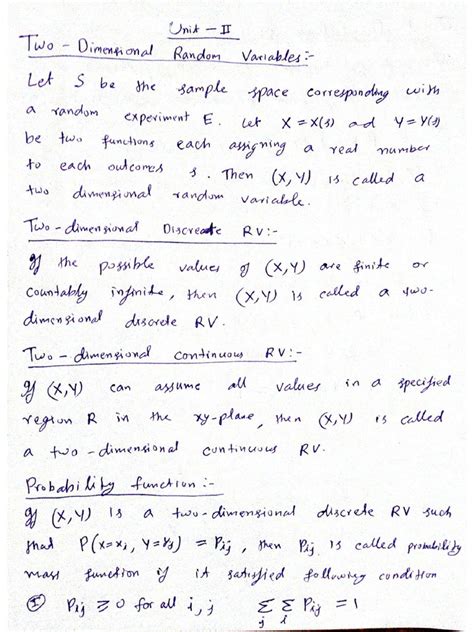 Unit - II
Two - Dimensional Random Variables:-
Let S be the sample space corresponding with
a random experiment E. Let X = X(s) and Y = Y(s)
be two functions each assigning a real number
to each outcomes s. Then (X, Y) is called a
two dimensional random variable.
Two-dimensional Discreate RV:-
If the possible values of (X,Y) are finite or
countably infinite, then (X,Y) is called a two-
dimensional discrete RV.
Two - dimensional continuous RV:-
If (X,Y) can assume all values in a specified
region R in the xy-plane, then (X,Y) is called
a two-dimensional continuous RV.
Probability function:-
If (X,Y) is a two-dimensional discrete RV such
that P(X=xi, Y=yj) = Pij, then Pij is called probability
mass function if it satisfied following condition
① Pij ≥ 0 for all i, j Σj Σi Pij = 1